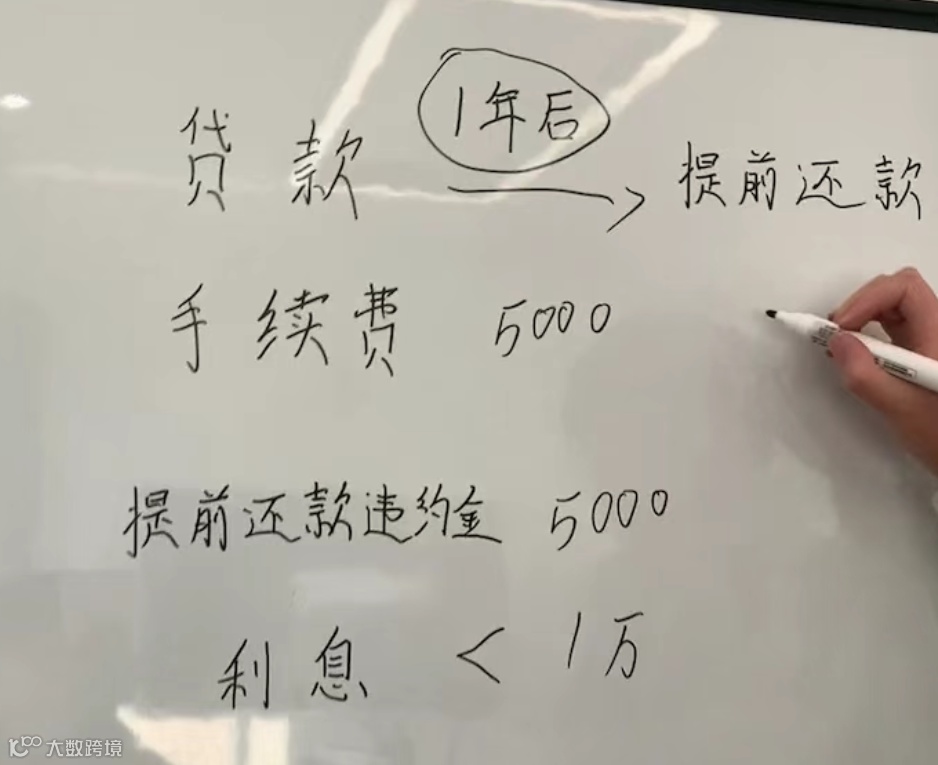 1年后
贷款 提前还款
手续费 5000
提前还款违约金 5000
利息 < 1万
大数跨境